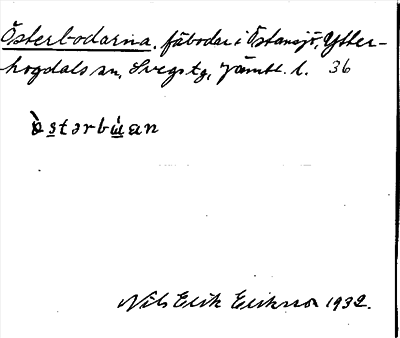 Österbodarna, fäbodar i Östansjö, Ytter-
hogdals sn, Svegs tg, Jämtl. l. 36
östərbɯan
Nils Erik Eriksson 1932.